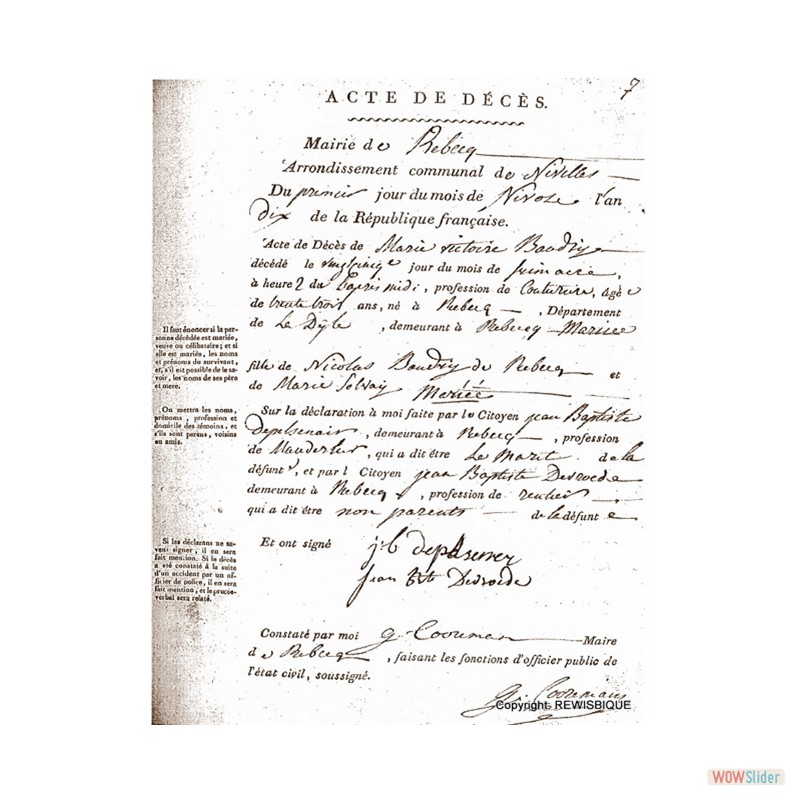 7
ACTE DE DÉCÈS.
Mairie de Rebecq
Arrondissement communal de Nivelles
Du premier jour du mois de Nivose l'an
Dix de la République française.
Acte de Décès de Marie victoire Baudry
décédé le vingtcinq jour du mois de frimaire,
à heure 2 du midi, profession de Couturiere, âgé e
de trente trois ans, né à Rebecq, Département
de La Dÿle, demeurant à Rebecq Mariée
fille de Nicolas Baudry de Rebecq et
de Marie Solvay Mariée
Sur la déclaration à moi faite par le Citoyen jean Baptiste
, demeurant à Rebecq, profession
de, qui a dit être Le Marit de la
défunt e, et par l Citoyen jean Baptiste Desroede
demeurant à Rebecq, profession de rentier
qui a dit être non parents de la défunt e
Et ont signé
j: b
jean Bte Desroede
Constaté par moi g. Cooreman Maire
de Rebecq, faisant les fonctions d'officier public de
l'état civil, soussigné.
G. Cooremans
Il faut énoncer si la per-
sonne décédée est mariée,
veuve ou célibataire; et si
elle est mariée, les noms
et prénoms du survivant,
et, s'il est possible de le sa-
voir, les noms de ses père
et mere.
On mettra les noms,
prénoms, profession et
domicile des témoins, et
s'ils sont parens, voisins
ou amis.
Si les déclarans ne sa-
vent signer, il en sera
fait mention. Si le décès
a été constaté à la suite
d'un accident par un of-
ficier de police, il en sera
fait mention, et le procès-
verbal sera relaté.
Copyright: REWISBIQUE
WOWSlider